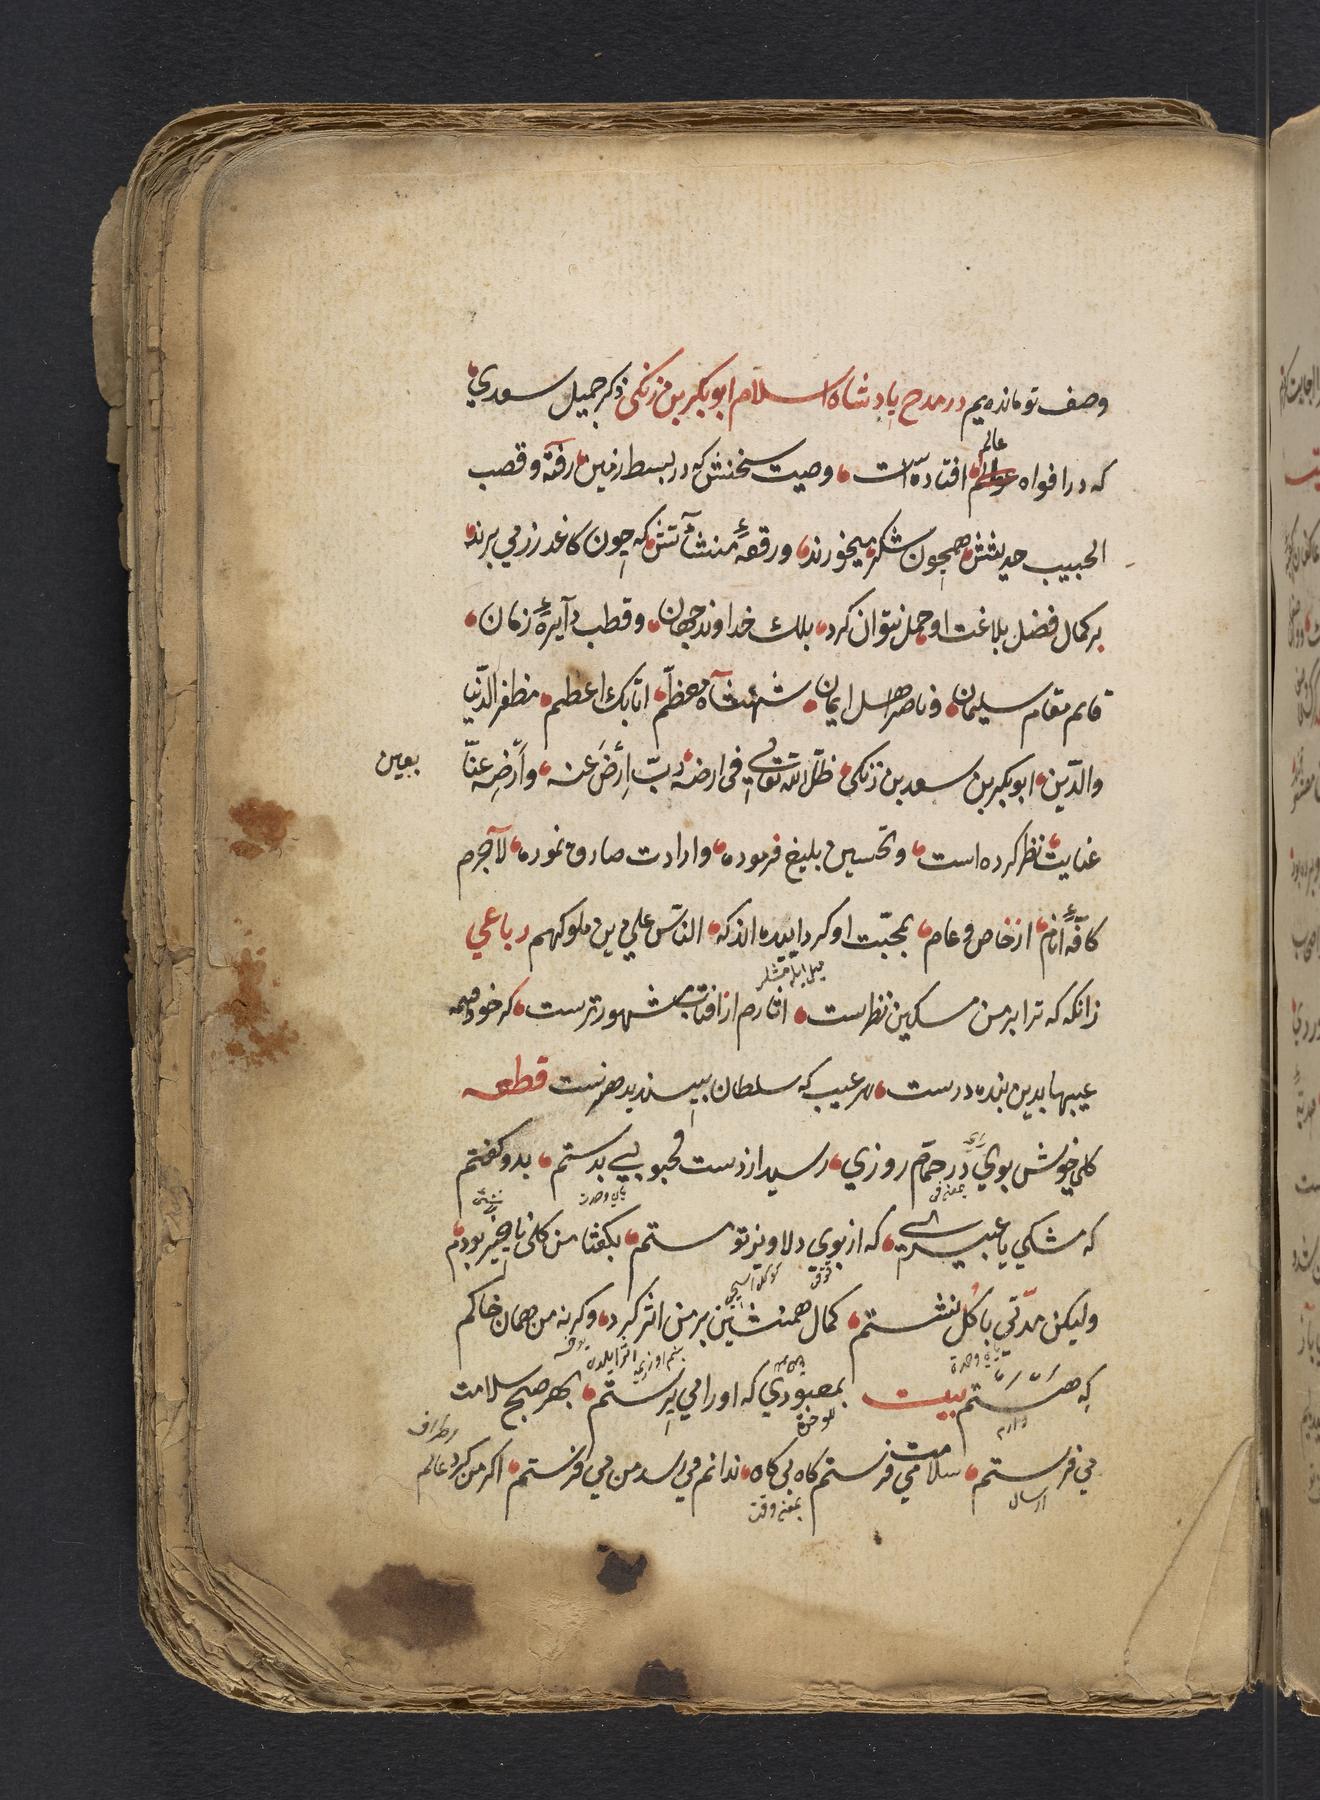 وصف تو مانده‌یم در مدح پادشاه اسلام ابو بکر بن زنکی ذکر جمیل سعدي
عالم
که در افواه عوام افتاده است وصیت سخنش که در بسط زمین رفته وقصب
الحبیب حدیثش همچون شکر میخورند ورقعهٔ منشآتش که چون کاغد زر می برند
بر کمال فضل بلاغت او حمل نتوان کرد بلك خداوند جهان وقطب دآیرهٔ زمان
قایم مقام سلیمان وناصر اهل ایمان شهنشاه معظّم اتابك اعظم مظفر الدّنیا
والدّین ابو بکر بن سعد بن زنکی ظلّ الله تعالی فی ارضه ربّ اِرْضَ عنه واَرْضِه عنّا
بعین
عنایت نظر کرده است وتحسین بلیغ فرموده وارادت صادق نموده لاجرم
کافّهٔ اَنام از خاص وعام بمحبّت او کردآییده اند که الناس علي دین ملوکهم رباعي
زانکه که ترا بر من مسکین نظر است اثارم از افتاب مشهورترست کر خود همه
عیبها بدین بنده درست هر عیب که سلطان بپسندید هنرست قطعه
کلي خوش بوي در حمّام روزي رسید از دست محبوبي بدستم بدو کفتم
بمعنی فی
یای وحدت
که مشکي یا عبیري که از بوي دلاویز تو مستم بکفتا من کلی ناچیز بودم
قوقو
ولیکن مدّتي با کُل نشستم کمال همنشین بر من اثر کرد وکرنه من همان خاکم
یای وحدة
که هَسَتَم بیت بمعبودي که اورا مي پرستم بهر صبح سلامت
وارم
اطراف
مي فرستم سلامت مي فرستم کاه بی کاه ندانم مي رسد من مي فرستم اکر من کرد عالم
ارسال
بمعنی وقت